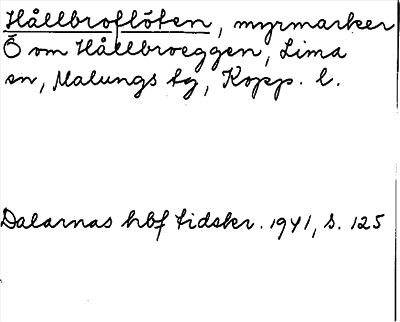 Hållbroflöten, myrmarker
Ö om Hållbroeggen, Lima
sn, Malungs tg, Kopp. l.
Dalarnas hbf tidskr. 1941, s. 125